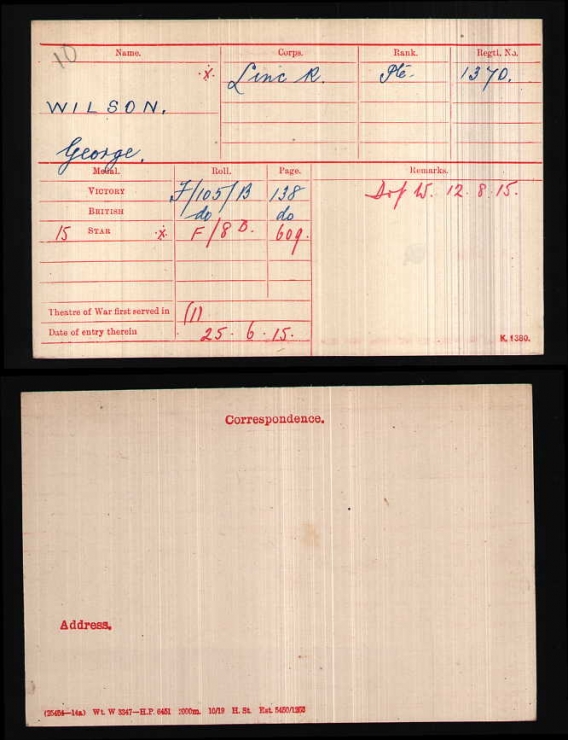 10
Name. Corps. Rank. Regtl. No.
x Linc R. Pte. 1370.
WILSON,
George.
Medal. Roll. Page. Remarks.
VICTORY F/105/B 138 D of W. 12.8.15.
BRITISH do do
15 STAR x F/8 B. 609.
Theatre of War first served in (1)
Date of entry therein 25.6.15.
K. 1380.
Correspondence.
Address.
Wt. W 3347—H.P. 6451 1000m. 10/19 H. St.